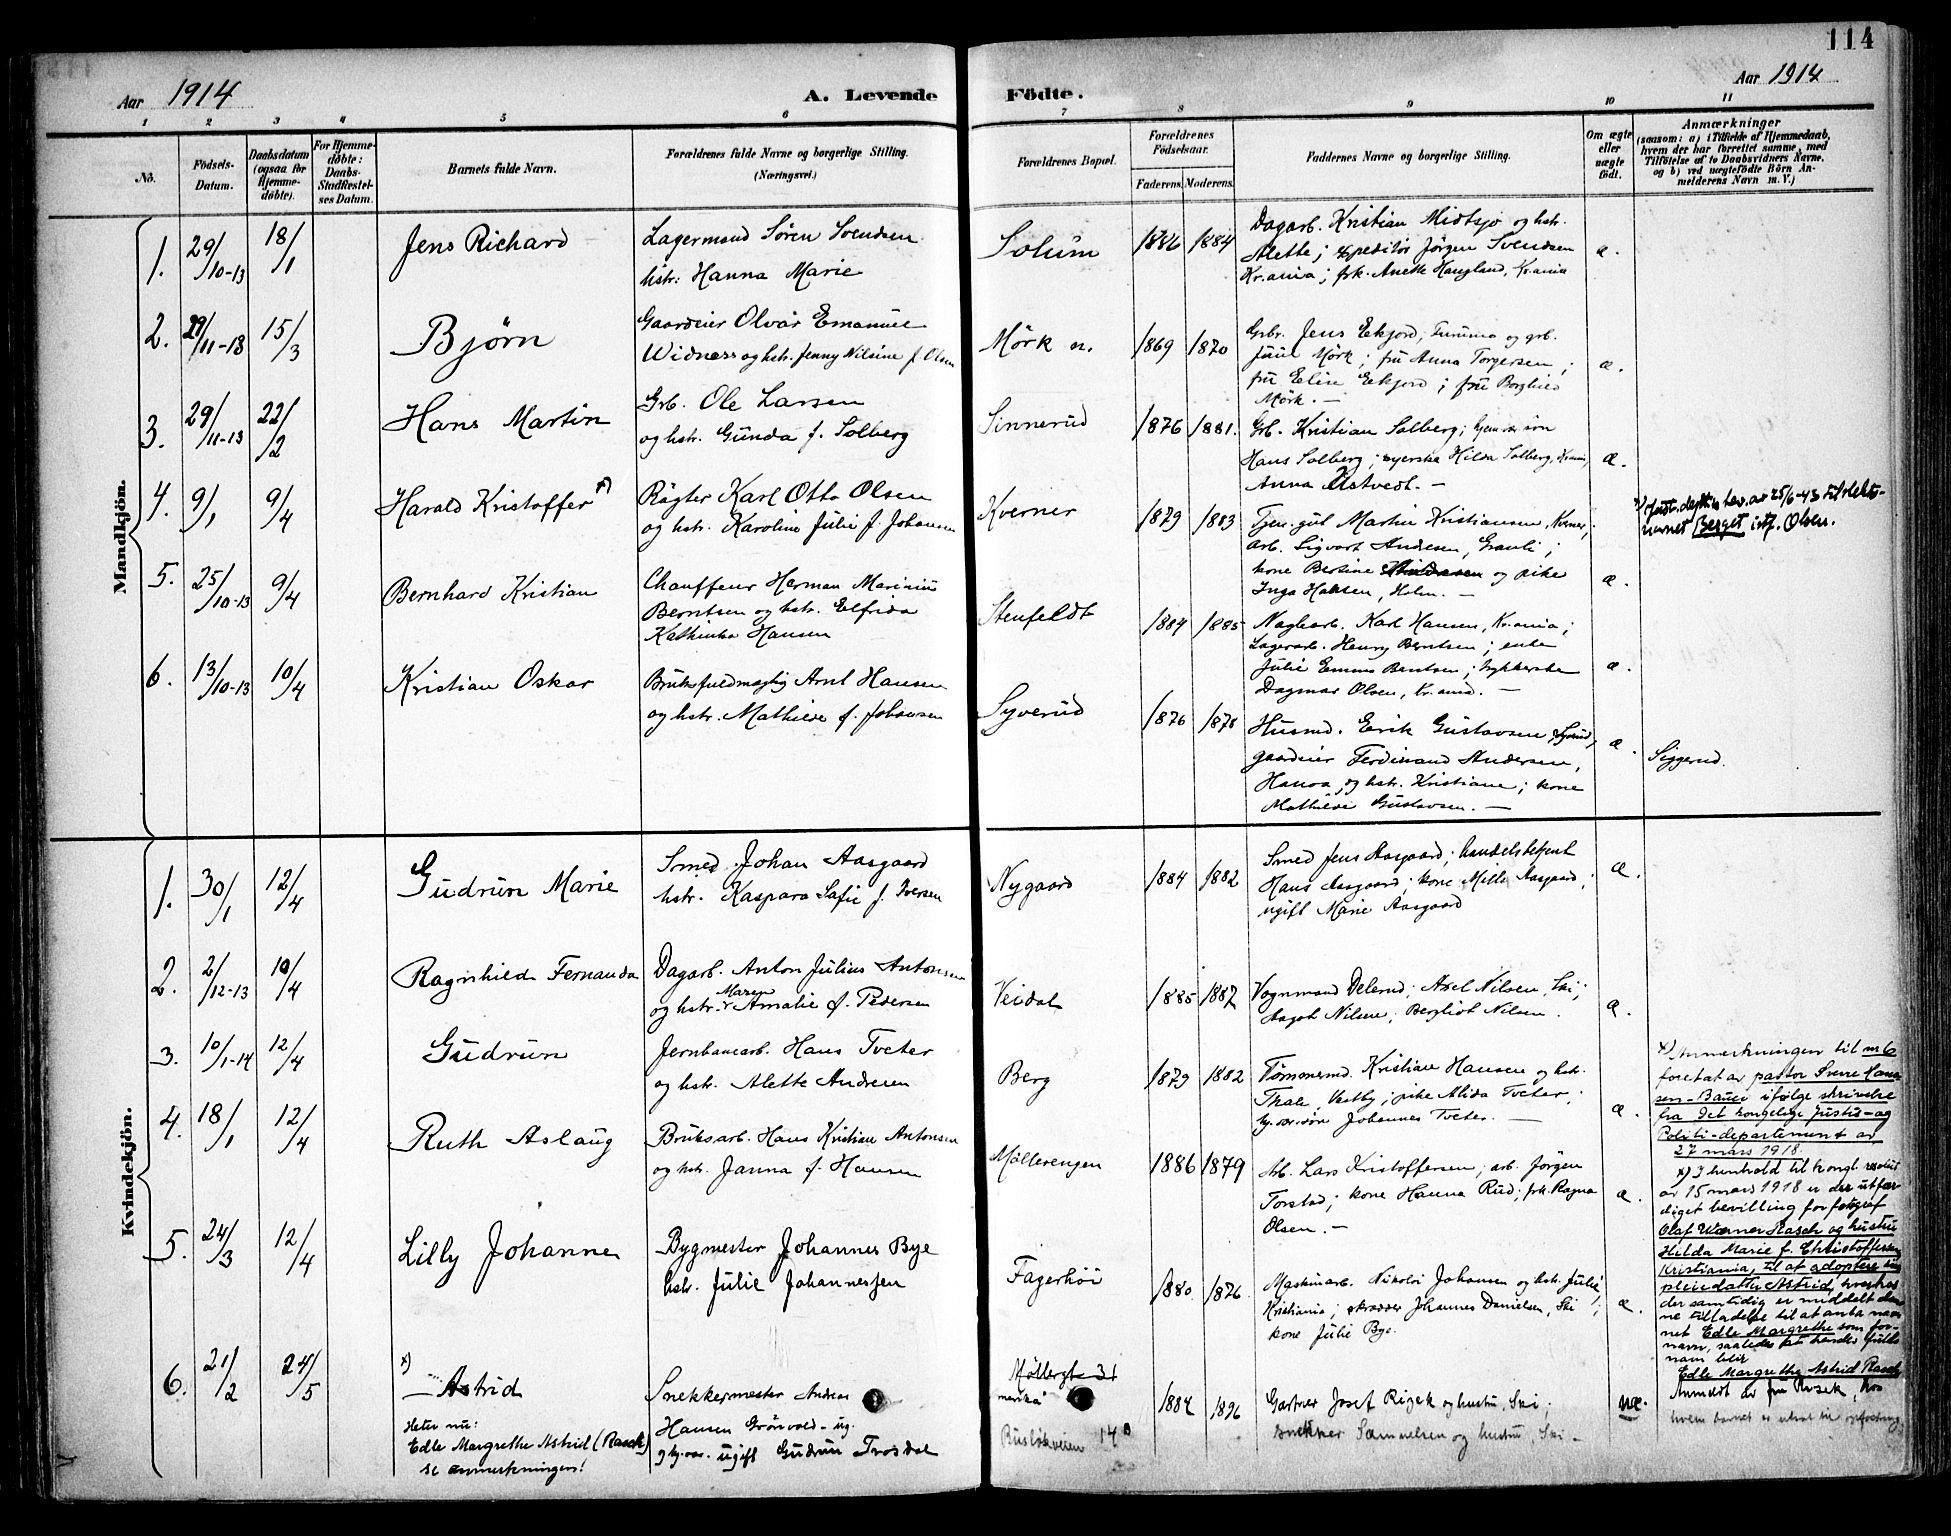 114
Aar 1914
A. Levende Födte.
Aar 1914
1 2 3 4 5 6 7 8 9 10 11
No.
Födsels-Datum.
Daabsdatum (ogsaa for Hjemme-döbte).
For Hjemme-döbte: Daabs-Stadfæstel-ses Datum.
Barnets fulde Navn.
Forældrenes fulde Navne og borgerlige Stilling. (Næringsvei.)
Forældrenes Bopæl.
Forældrenes Födselsaar.
Faderens. Moderens.
Faddernes Navne og borgerlige Stilling.
Om ægte eller uægte födt.
Anmærkninger
(saasom: a) i Tilfælde af Hjemmedaab,
hvem der har forrettet samme, med
Tilföielse af to Daabsvidners Navne,
og b) ved uægtefödte Börn An-
melderens Navn m. V.)
Mandkjön.
1. 29/10-13 18/1 Jens Richard
Lagermand Sören Svendsen
hstr. Hanna Marie
Solum 1886 1884
Dagarb. Kristian Midtsjø og hstr.
Alette; expeditör Jörgen Svendsen
Kr.ania; frk. Anette Haugland, Kr.ania
æ.
2. 29/11-13 15/3 Björn
Gaardeier Olvar Emanuel
Widness og hstr. Jenny Nilsine f. Olsen
Mörk n. 1869 1870
Grbr. Jens Eekjord, Tumma og grb.
Juul Mörk; fru Anna Torgersen;
fru Eline Eekjord; fru Borghild
Mörk. —
æ.
3. 29/11-13 22/2 Hans Martin
Grb. Ole Larsen
og hstr. Gunda f. Solberg
Sinnerud 1876 1881.
Grb. Kristian Solberg; hjemmevær. sön
Hans Solberg; syerske Hilda Solberg, Kr.ania,
Anna Østvedt. —
æ.
4. 9/1 9/4 Harald Kristoffer x)
Rögter Karl Otto Olsen
og hstr. Karoline Julie f. Johansen
Kverner 1879 1883
Tjen.gut Martin Kristiansen, Kverner;
arb. Sigvart Andresen, Grauli;
kone Bertine og pike
Inga Hansen, Holm. —
æ.
x) Just.dept.s bev. av 25/6-43 til slekts-
navnet Berget istf. Olsen.
5. 25/10-13 9/4 Bernhard Kristian
Chauffeur Herman Marinius
Berntsen og hstr. Elfrida
Kathinka Hansen
Stenfeldt 1884 1885
Naglearb. Karl Hansen, Kr.ania;
Lagerarb. Henry Berntsen; enke
Julie Emma Berntsen; trykkerske
Dagmar Olsen, Kr.ania. —
æ.
6. 13/10-13 10/4 Kristian Oskar
Bruksfuldmægtig Arnt Hansen
og hstr. Mathilde f. Johansen
Syverud 1876 1878
Husmd. Erik Gustavsen, Syverud,
gaardeier Ferdinand Andersen,
Hanva, og hstr. Kristiane; kone
Mathilde Gustavsen. —
æ.
Siggerud.
Kvindekjön.
1. 30/1 12/4 Gudrun Marie
Smed Johan Aasgaard
hstr. Kaspara Sofie f. Iversen
Nygaard 1884 1882
Smed Jens Aasgaard; handelsbetjent
Hans Aasgaard; kone Milli Aasgaard;
ugift Marie Aasgaard
æ.
2. 2/12-13 10/4 Ragnhild Fernanda
Dagarb. Anton Julius Antonsen
og hstr. Maren Amalie f. Pedersen
Veidal 1885 1887
Vognmand Delerud; Axel Nilsen, Ski;
Aagot Nilsen; Bergliot Nilsen.
æ.
3. 10/1-14 12/4 Gudrun
Jernbanearb. Hans Tveter
og hstr. Alette Andresen
Berg 1879 1882
Tömmermd. Kristian Hansen og hstr.
Thale, Vestby; pike Alida Tveter;
hj.vær. sön Johannes Tveter. —
æ.
4. 18/1 12/4 Ruth Aslaug
Bruksarb. Hans Kristian Antonsen
og hstr. Janna f. Hansen
Möllerengen 1886 1879
Arb. Lars Kristoffersen; arb. Jörgen
Torstad; kone Hanna Rud; frk. Ragna
Olsen. —
æ.
5. 24/3 12/4 Lilly Johanne
Bygmester Johannes Bye
hstr. Julie Johannessen
Fagerhöi 1880 1876
Maskinarb. Nikolai Johansen og hstr. Julie
Kristiania; skrædder Johannes Danielsen, Ski;
kone Julie Bye.
æ.
6. 21/2 24/5 x) Astrid
Heter nu:
Edle Margrethe Astrid (Rasch)
se anmerkningen!
Snekkermester Andreas
Hansen Grönvold - ug.
og hj.vær. ugift Gudrun Trosdal
Möllergt. 31
Rusløkveien 14 B
1884 1896
Gartner Josef Rizek og hustru, Ski.
snekker Samuelsen og hustru, Ski —
uæ.
x) Anmerkningen til nr 6
foretat av pastor Sverre Han-
sen-Bauer ifølge skrivelse
fra Det kongelige Justis- og
Politi-departement av
27 mars 1918.
x) I henhold til kongl. resolut.
av 15 mars 1918 er der utfær-
diget bevilling for fotograf
Olaf Werner Rasch og hustru
Hilda Marie f. Christoffersen,
Kristiania, til at adoptere sin
pleiedatter Astrid, hvorhos
der samtidig er meddelt den-
ne tilladelse til at anta nav-
net Edle Margrethe som for-
navn, saaledes at hendes fulde
navn blir
Edle Margrethe Astrid Rasch
Anmeldt av fru Rasch, hos
hvem barnet er utsat til opfostring